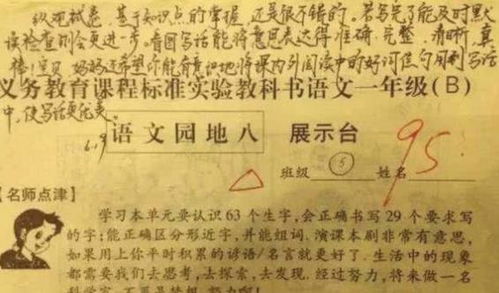 纵观试卷，基于知识点的掌握，还是很不错的。若写完了能及时默
读检查则会更进一步。看图写话能将意思表达得准确、完整、清晰，真
棒！宝贝，妈妈还希望你能有意识地将课内外阅读中的好词佳句用到写话
义务教育课程标准实验教科书语文一年级(B)
中，使写话更优美。
6.9
语文园地八 展示台
95
班级 ⑤ 姓名
【名师点津】
学习本单元要认识63个生字，会正确书写29个要求写
的字；能正确区分形近字，并能组词。演课本剧非常有意思，
如果用上你平时积累的谚语/名言就更好了。生活中的现象
都需要我们去思考，去探索，去发现。经过努力，将来做一名